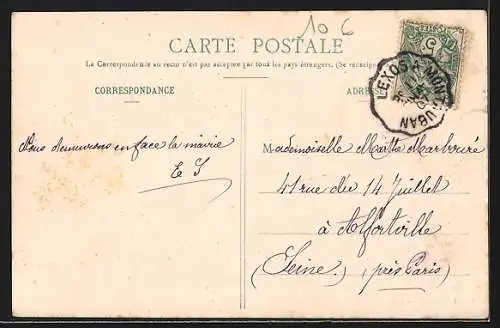 10 6
CARTE POSTALE
La Correspondance au recto n'est pas acceptée par tous les pays étrangers. (Se renseigner
CORRESPONDANCE
ADRES
LEXOS A MONT UBAN
Nous demeurons en face la mairie
E S
Mademoiselle Marthe Marbouré
41 rue du 14 Juillet
à Alfortville
(Seine.) (près Paris)